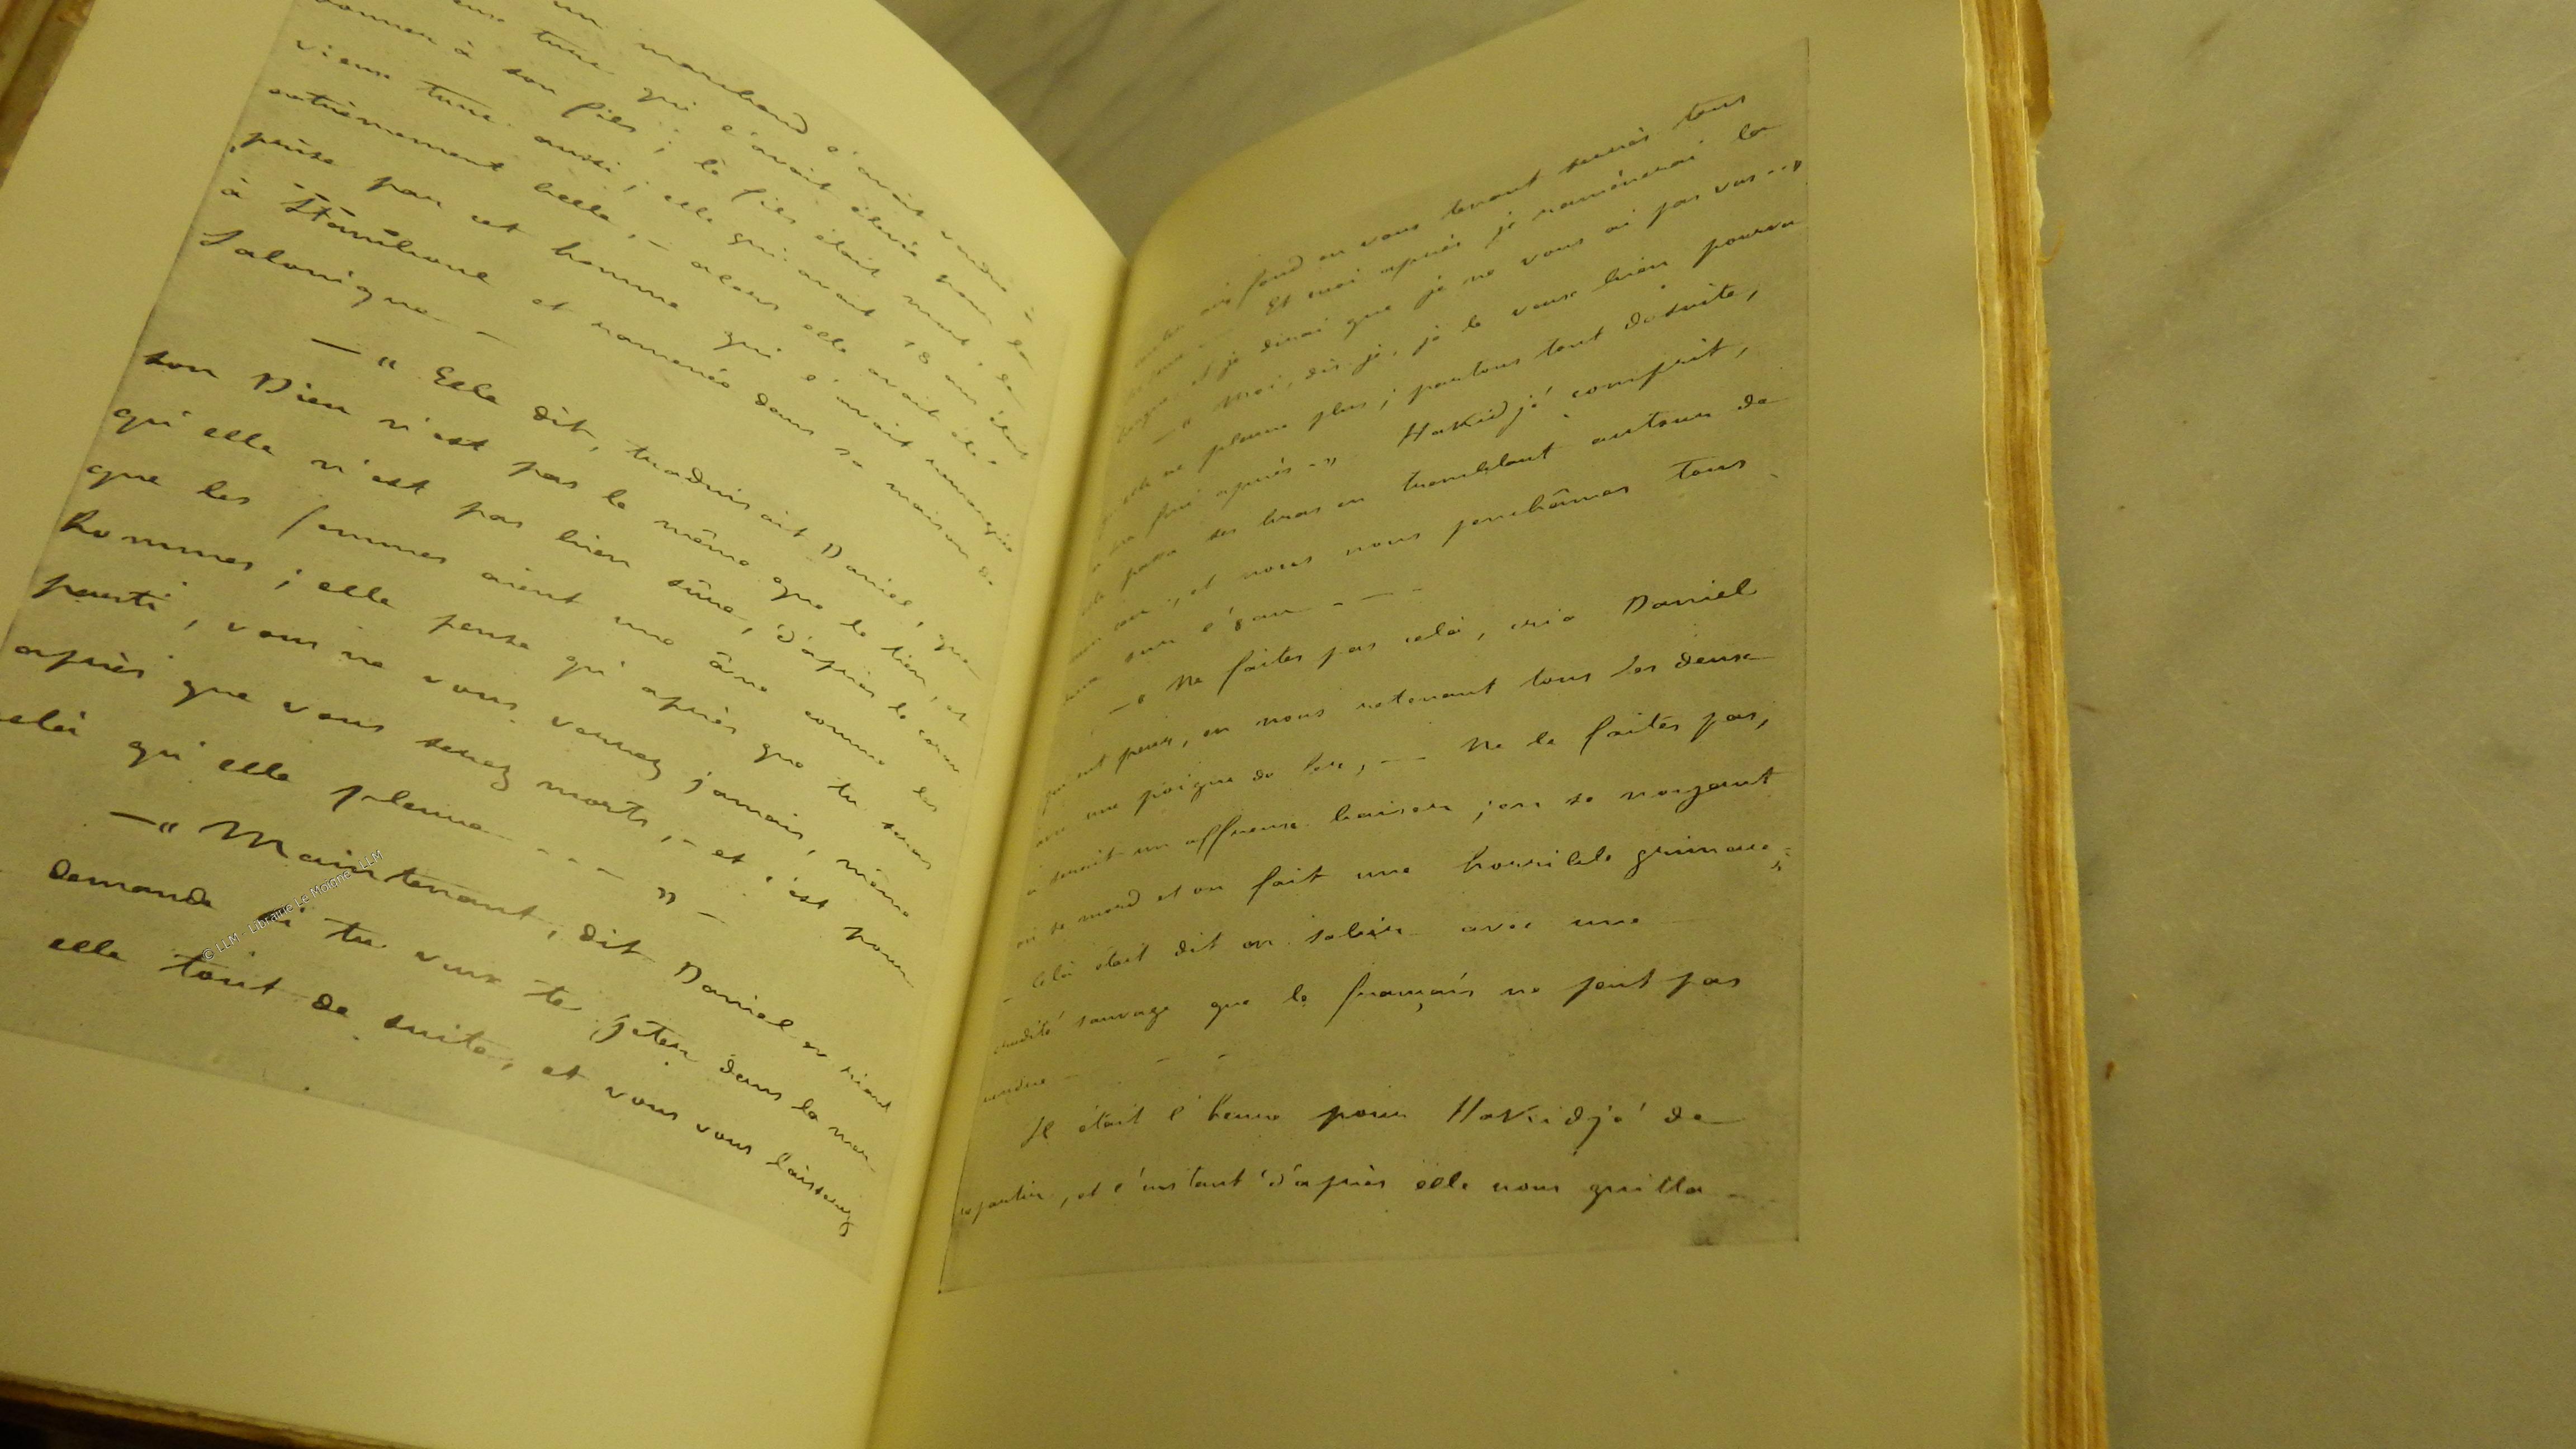 un marchand l'avait vendue à
vieux turc qui l'avait élevée pour la
donner à son fils ; le fils était mort, le
vieux turc aussi ; elle qui avait 18 ans était
extrêmement belle, – alors elle avait été
prise par cet homme qui l'avait remarquée
à Stamboul et ramenée dans sa maison de
Salonique –
– " Elle dit, traduisait Daniel, que
son Dieu n'est pas le même que le tien, et
qu'elle n'est pas bien sûre, d'après le coran
que les femmes aient une âme comme les
hommes ; elle pense qu'après que tu seras
parti, vous ne vous verrez jamais, même
après que vous serez morts, – et c'est pour
celà qu'elle pleure - - - - " –
– " Maintenant, dit Daniel en riant
demande si tu veux te jeter dans la mer
elle tout de suite, et vous vous laisserez
© LLM - Librairie Le Moigne - LLM
fond en vous tenant serrés tous
Et moi après je ramènerai la
et je dirai que je ne vous ai pas vus - - "
– " Moi, dis-je, je le veux bien pourvu
ne pleure plus ; partons tout de suite,
fini après - " Hakidjé comprit,
passa ses bras en tremblant autour de
mon cou ; et nous nous penchâmes tous
sur l'eau - - - -
– " Ne faites pas celà, cria Daniel
eut peur, en nous retenant tous les deux
une poigne de fer, - - Ne le faites pas,
un affreux baiser, car en se noyant
on se mord et on fait une horrible grimace "
– Celà était dit en sabir avec une
crudité sauvage que le français ne peut pas
rendre - - -
Il était l'heure pour Hakidjé de
repartir, et l'instant d'après elle nous quitta -